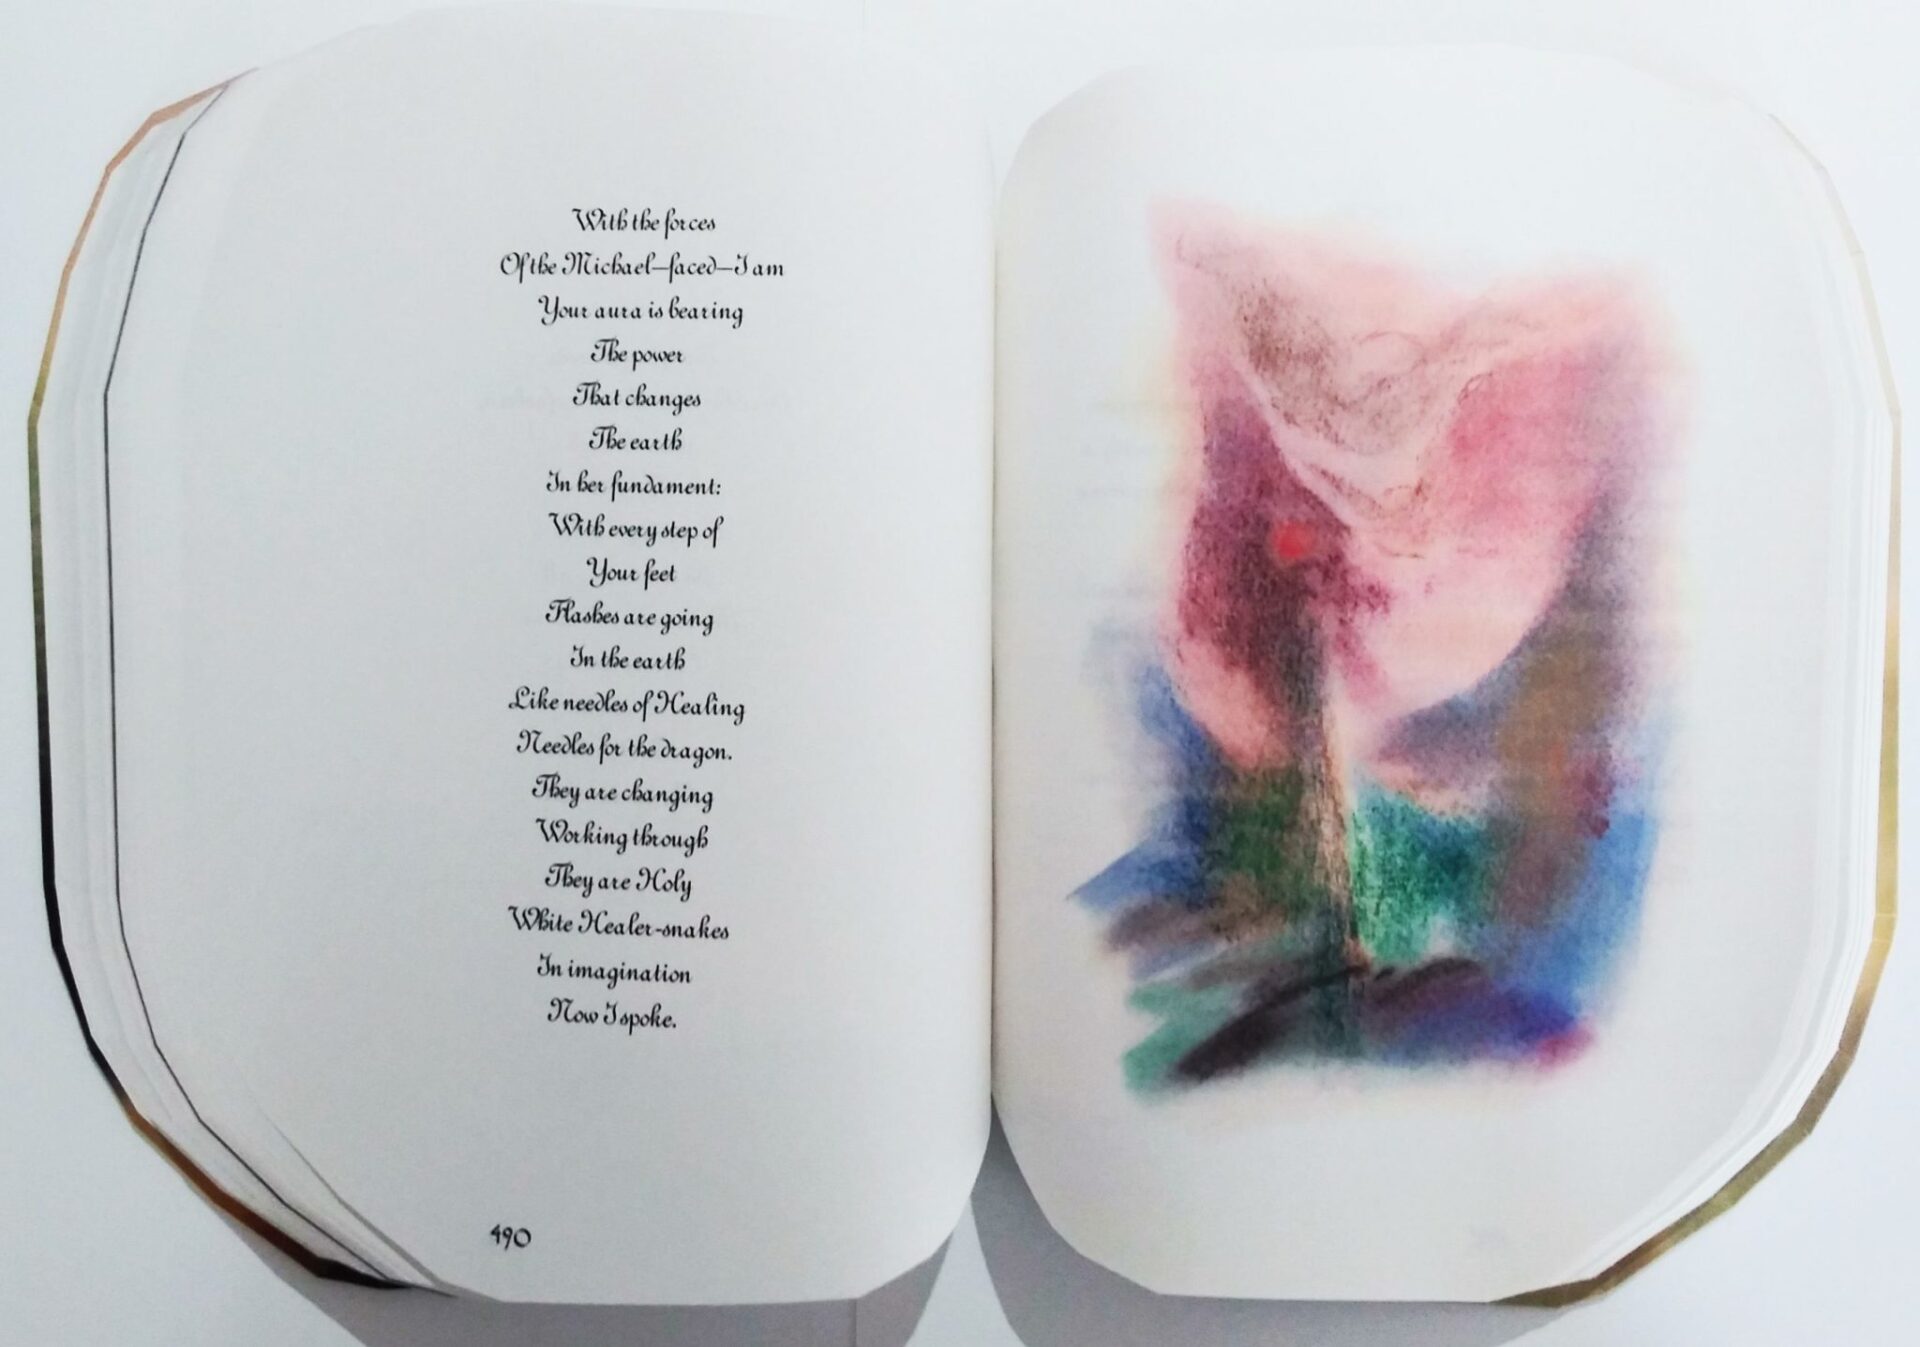 With the forces
Of the Michael–faced–I am
Your aura is bearing
The power
That changes
The earth
In her fundament:
With every step of
Your feet
Flashes are going
In the earth
Like needles of Healing
Needles for the dragon.
They are changing
Working through
They are Holy
White Healer-snakes
In imagination
Now I spoke.
490